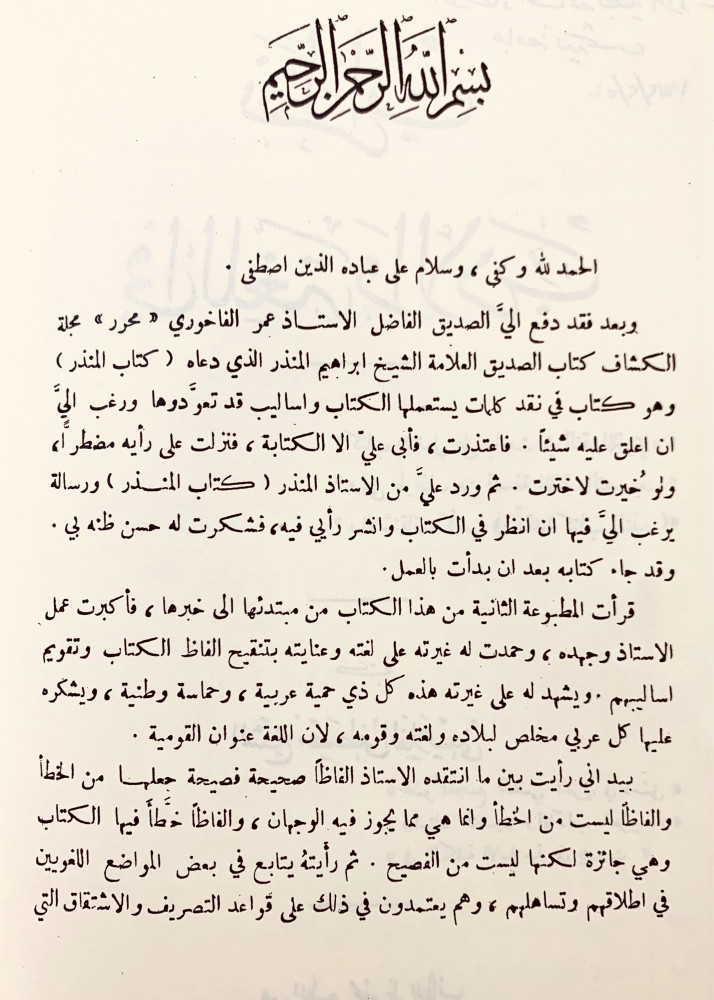 بسم الله الرحمن الرحيم
الحمد لله وكفى ، وسلام على عباده الذين اصطفى .
وبعد فقد دفع اليَّ الصديق الفاضل الاستـاذ عمر الفاخوري « محرر » مجلة
الكشاف كتاب الصديق العلامة الشيخ ابراهيم المنذر الذي دعاه ( كتاب المنذر )
وهو كتاب في نقد كلمات يستعملها الكتاب واساليب قد تعوَّدوها ورغب اليَّ
ان اعلق عليه شيئاً . فاعتذرت ، فأبى عليّ الا الكتابة ، فنزلت على رأيه مضطراً،
ولو خُيرت لاخترت . ثم ورد عليَّ من الاستاذ المنذر ( كتاب المنـذر ) ورسالة
يرغب اليَّ فيها ان انظر في الكتاب وانشر رأيي فيه، فشكرت له حسن ظنه بي .
وقد جاء كتابه بعد ان بدأت بالعمل.
قرأت المطبوعة الثانية من هذا الكتاب من مبتدئها الى خبرها ، فأكبرت عمل
الاستاذ وجهده ، وحمدت له غيرته على لغته وعنايته بتنقيح الفاظ الكتاب وتقويم
اساليبهم . ويشهد له على غيرته هذه كل ذي حمية عربية ، وحماسة وطنية ، ويشكره
عليها كل عربي مخلص لبلاده ولغته وقومه ، لان اللغة عنوان القومية .
بيد اني رأيت بين ما انتقده الاستاذ الفاظاً صحيحة فصيحة جعلهـا من الخطأ
والفاظاً ليست من الخطأ وانما هي مما يجوز فيه الوجهان ، والفاظاً خطَّأَ فيها الكتاب
وهي جائزة لكنها ليست من الفصيح . ثم رأيتهُ يتابع في بعض المواضع اللغويين
في اطلاقهم وتساهلهم ، وهم يعتمدون في ذلك على قواعد التصريف والاشتقاق التي